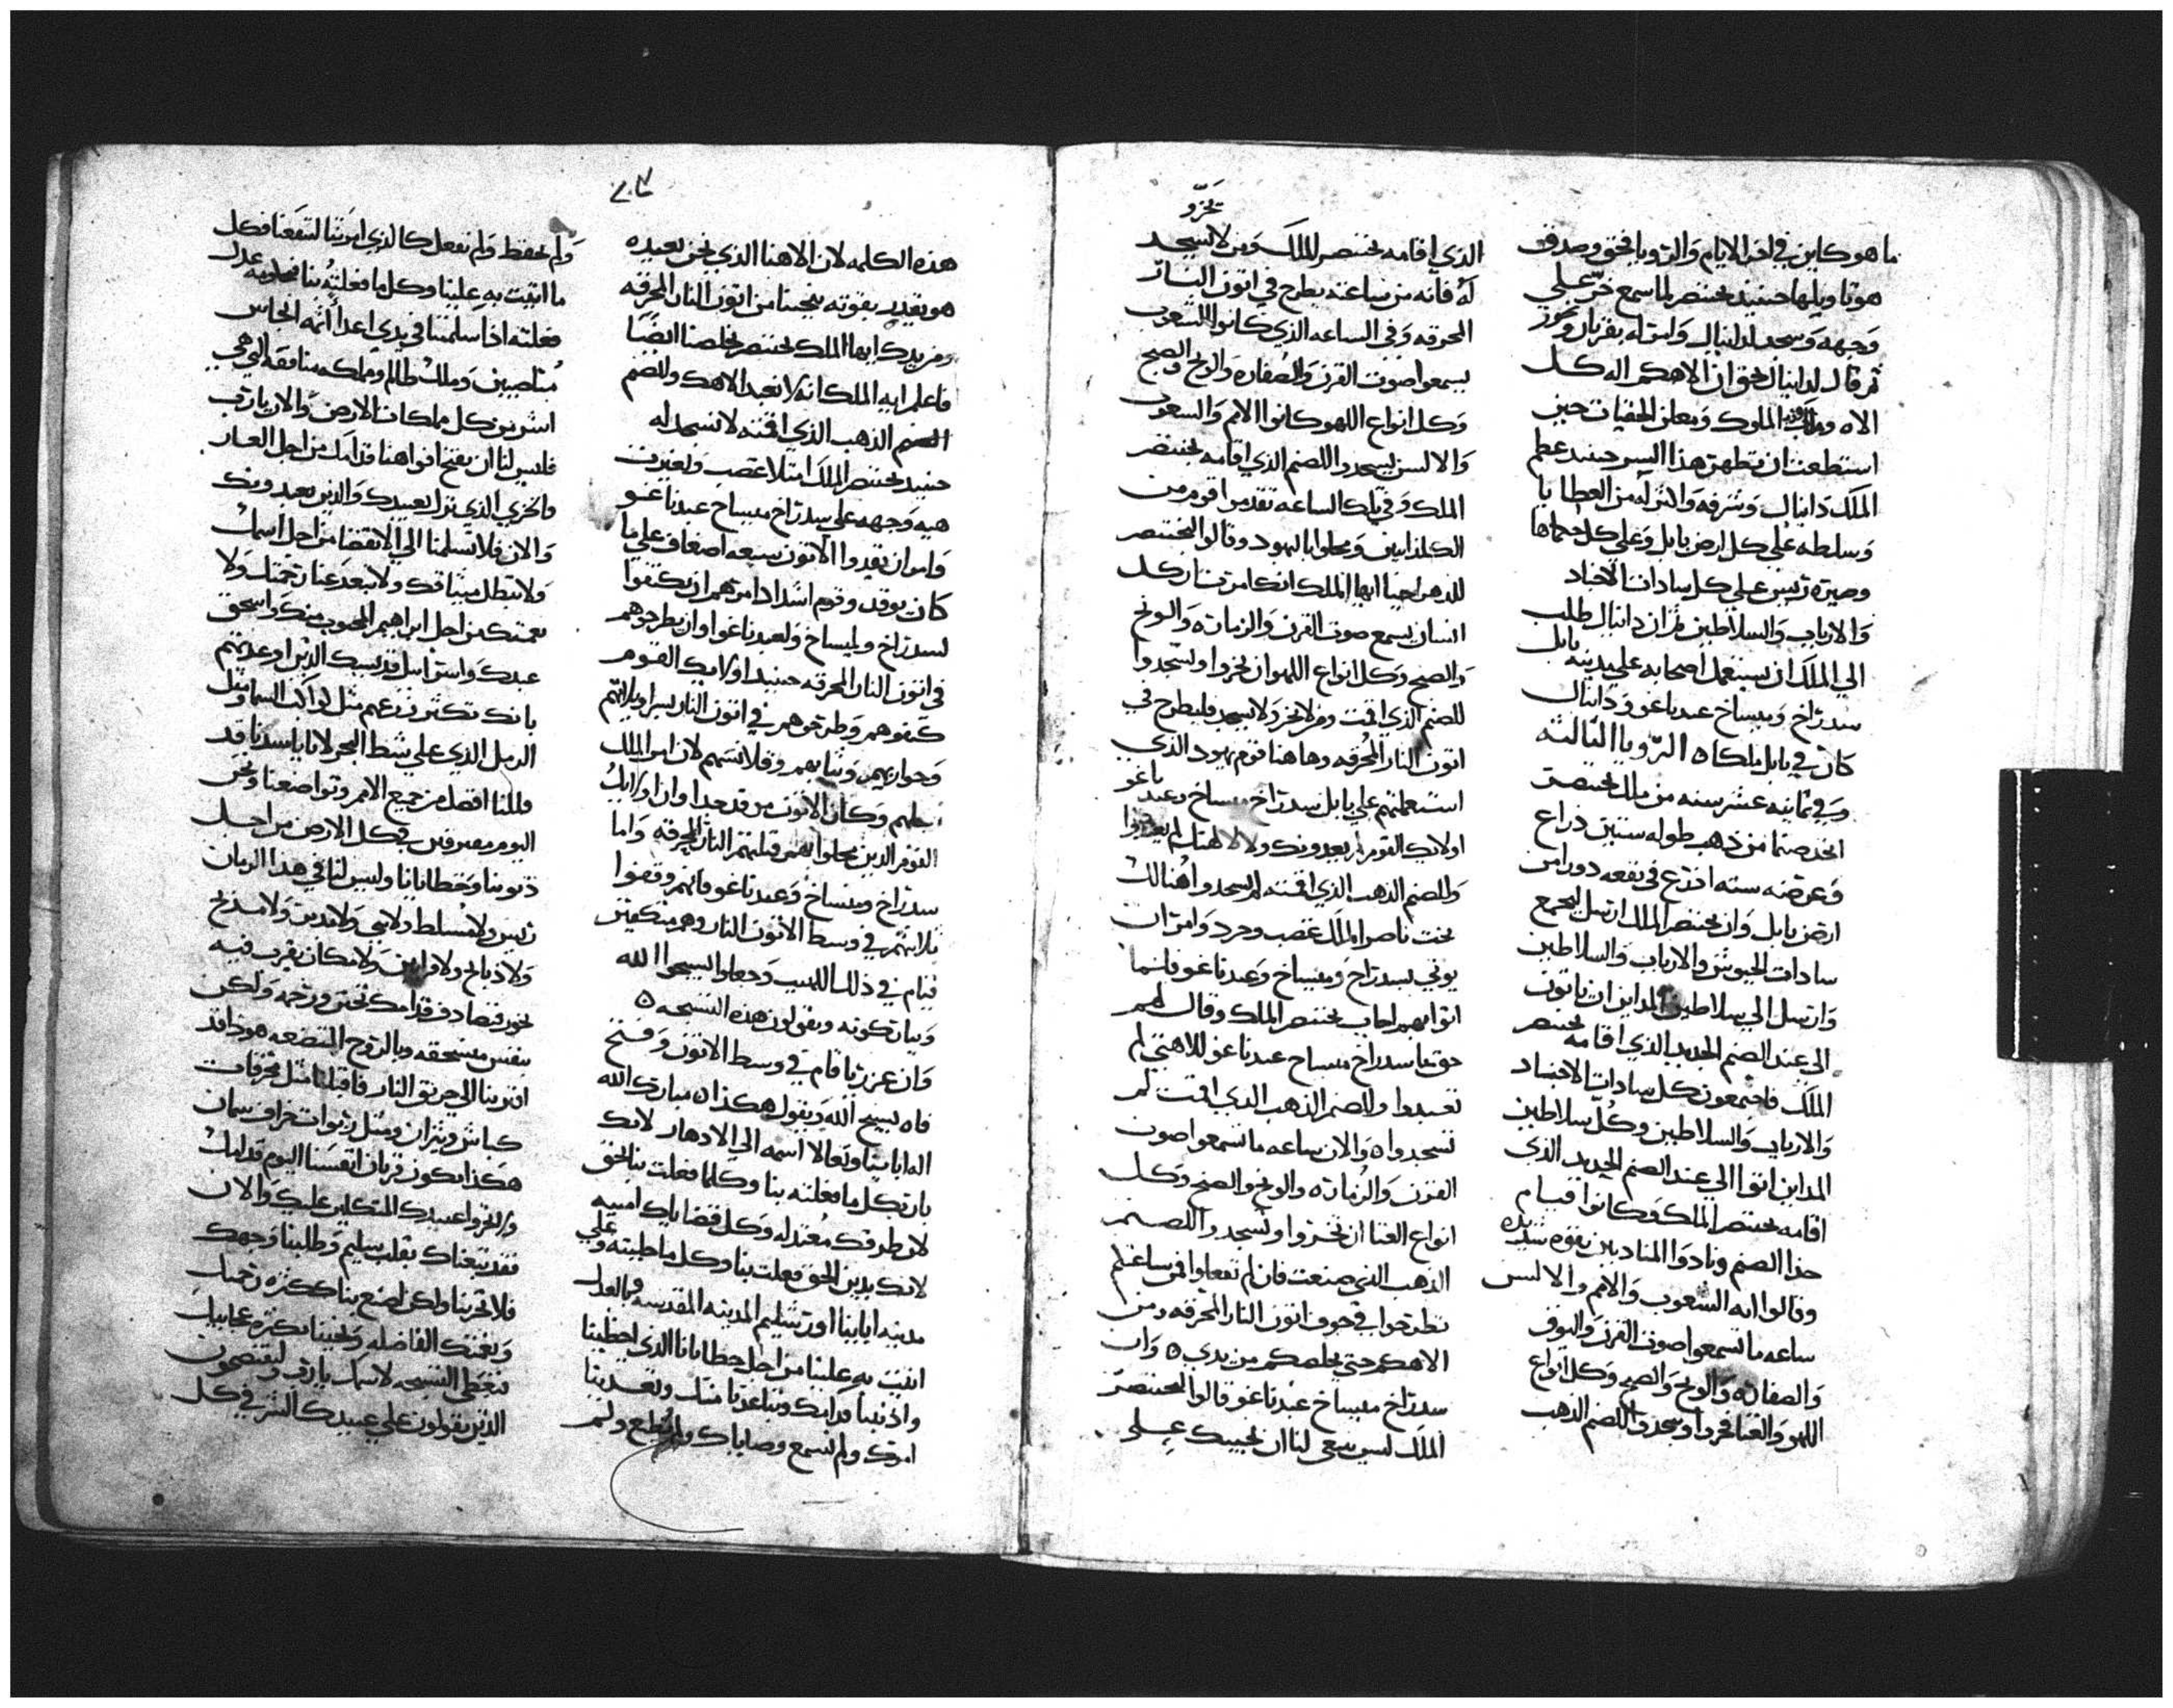 ما هو كاين في اخر الايام والرويا بحق وصدق
هو تاويلها حينيد بختنصر لما سمع خر علي
وجهه وسجد لدانيال وامر له بقربان وبخور
ثم قال لدانيال بحق ان الاهكم اله كل
الاه الملوك ومعلن الخفيات حين
استطعت ان تظهر هذا السر حينيد عظم
الملك دانيال وشرفه واكثر له من العطايا
وسلطه علي كل ارض بابل وعلي كل حكماها
وصيره ريس علي كل سادات الاجناد
والارباب والسلاطين ثم ان دانيال طلب
الي الملك ان يستعمل اصحابه علي مدينه بابل
سدراخ وميساخ عبدناغو ودانيال
كان في بابل ملكا ه الرويا التالته
وفي تمانيه عشر سنه من ملك بختنصر
اتخد صنما من ذهب طوله ستين دراع
وعرضه سته ادرع في بقعه دورا من
ارض بابل وان بختنصر الملك ارسل ليجمع
سادات الجيوش والارباب والسلاطين
وارسل الي سلاطين المداين ان ياتون
الي عند الصنم الجديد الذي اقامه بختنصر
الملك فاجتمعون كل سادات الاجناد
والارباب والسلاطين وكل سلاطين
المداين اتوا الي عند الصنم الجديد الذي
اقامه بختنصر الملك وكانوا قيام
حذا الصنم ونادوا المنادين بقوه شديده
وقالوا ايه الشعوب والامم والالسن
ساعه ما تسمعوا صوت القرن والبوق
والصفاره والونج والصبح وكل انواع
اللهو والغنا فخروا وسجدوا للصنم الذهب
تخرو
الذي اقامه بختنصر الملك ومن لا يسجد
له فانه من ساعته يطرح في اتون النار
المحرقه وفي الساعه الذي كانوا الشعوب
يسمعوا صوت القرن والصفاره والونج والصبح
وكل انواع اللهو كانوا الامم والشعوب
والالسن يسجدوا للصنم الذي اقامه بختنصر
الملك وفي تلك الساعه تقدموا قوم من
الكلدانيين ومحلوا باليهود وقالوا لبختنصر
للدهر احيا ايها الملك انك امرت ان كل
انسان يسمع صوت القرن والزماره والونج
والصبح وكل انواع اللهو ان يخروا ويسجدوا
للصنم الذي اقمت ومن لا يخر ولا يسجد فليطرح في
اتون النار المحرقه وها هنا قوم يهود الذي
استعملتهم علي بابل سدراخ ميساخ وعبدناغو
اولايك القوم لم يعبدونك ولا لالهتك لم يعبدوا
وللصنم الذهب الذي اقمته لم يسجدوا هنالك
بخت ناصر الملك غضب وحرد وامر ان
يوتي بسدراخ وميساخ وعبدناغو فلما
اتوا بهم اجاب بختنصر الملك وقال لهم
حق يا سدراخ ميساح عبدناغو للاهتي لم
تعبدوا وللصنم الذهب الذي اقمت لم
تسجدوا ه والان ساعه ما تسمعوا صوت
القرن والزماره والونج والصبح وكل
انواع الغنا ان تخروا وتسجدوا للصنم
الذهب الذي صنعت فان لم تفعلوا فمن ساعتكم
تطرحوا في جوف اتون النار المحرقه ومن
الاهكم حتي يخلصكم من يدي ه وان
سدراخ ميساخ عبدناغو قالوا لبختنصر
الملك ليس ينبغي لنا ان نجيبك علي
هذه الكلمه لان الاهنا الذي نحن نعبده
هو يقدر بقوته ينجينا من اتون النار المحرقه
ومن يدك ايها الملك بختنصر يخلصنا ايضا
فاعلم ايه الملك انه لا نعبد الاهك وللصنم
الصنم الذهب الذي اقمته لا نسجد له
حينيد بختنصر الملك امتلا غضب وتغيرت
هيه وجهه علي سدراخ ميساخ عبدناغو
وامر ان يقدوا الاتون سبعه اضعاف علي ما
كان يوقد وقوم اشداد امرهم ان يكتفوا
لسدراخ وميساخ ولعبدناغو وان يطرحوهم
في اتون النار المحرقه حينيد اولايك القوم
كتفوهم وطرحوهم في اتون النار بسراويلاتهم
وجواربهم وثيابهم وقلانسهم لان امر الملك
وكان الاتون من قد جدا وان اولايك
القوم الدين محلوا بهم قتلتهم النار المحرقه واما
سدراخ وميساخ وعبدناغو فانهم وقعوا
تلاتتهم في وسط الاتون النار وهم مكتفين
قيام في ذلك اللهيب وجعلوا يسبحوا الله
ويباركونه ويقولون هذه التسبحه ه
وان عزريا قام في وسط الاتون وفتح
فاه يسبح الله ويقول هكذا ه مبارك الله
اله ابابينا وتعالا اسمه الي الادهار لانك
بار بكل ما فعلته بنا وكلما فعلت بنا بالحق
لان طرقك معتدله وكل قضاياك امينه
لانك بدين الحق فعلت بنا وكل ما جلبته وعلي
مدينه ابابينا اورشليم المدينه المقدسه وبالعدل
اتيت به علينا من اجل خطايانا الذي اخطينا
وادنبنا قدامك وتباعدنا منك وتعدينا
امرك ولم نسمع وصاياك ولم نطع ولم
ولم نحفظ ولم نفعل كالذي امرتنا لتنفعنا فكل
ما اتيت به علينا وكل ما فعلته بنا فبحكومه عدل
فعلته اذا سلمتنا في يدي اعدا اتمه انجاس
مناصبين وملك ظالم ومملكه منافقه التي هي
اشر من كل مملكات الارض والان يا رب
فليس لنا ان نفتح افواهنا قدامك من اجل العار
والخزي الذي نزل بعبيدك والذين يعبدونك
والان فلا تسلمنا الي الانقضا من اجل اسمك
ولا تبطل ميثاقك ولا تبعد عنا رحمتك ولا
نعمتك من اجل ابراهيم المحبوب منك واسحق
عبدك واسراييل قديسك الذين اوعدتهم
بانك تكثر زرعهم مثل كواكب السما ومثل
الرمل الذي علي شط البحر لانا يا سيدنا قد
قللنا افضل من جميع الامم وتواضعنا ونحن
اليوم مفترقين في كل الارض من اجل
ذنوبنا وخطايانا وليس لنا في هذا الزمان
ريس ولا مسلط ولا نبي ولا مدبر ولا مديح
ولا ذبايح ولا قرابين ولا مكان يقرب فيه
بخور فنصادف قدامك تحنن ورحمه ولكن
بنفس منسحقه وبالروح المتضعه هو ذا قد
اقتربنا الي حريق النار فاقبلنا مثل محرقات
كباش وثيران ومثل ربوات خراف سمان
هكذا يكون قربان انفسنا اليوم قدامك
ولا تخزوا عبيدك المتكلين عليك والان
فقد تبعناك بقلب سليم وطلبنا وجهك
فلا تخزينا ولكن اصنع بنا ككثره رحمتك
ونعمتك الفاضله ونجينا بكثره عجايبك
فتعطي التسبحه لاسمك يا رب وليفتضحون
الذين يقولون علي عبيدك الشر في كل